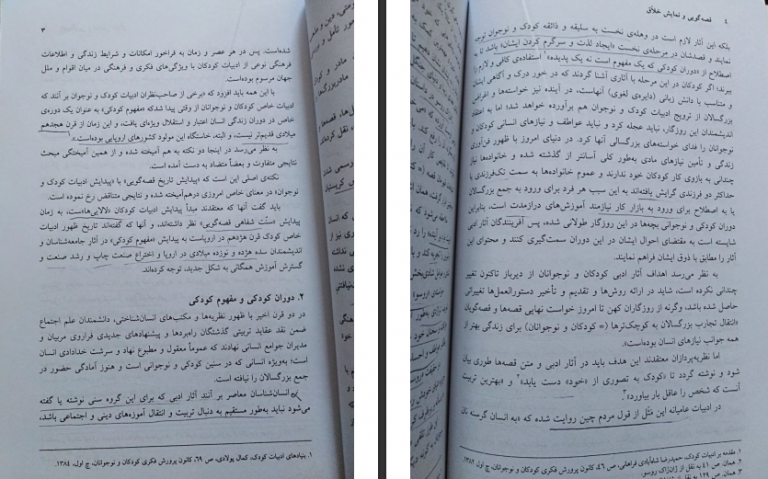 ۳
شده‌است. پس در هر عصر و زمان به فراخور امکانات و شرایط زندگی و اطلاعات
فرهنگی نوعی از ادبیات کودکان با ویژگی‌های فکری و فرهنگی در میان اقوام و ملل
جهان مرسوم بوده‌است.
با این همه باید افزود که «برخی از صاحب‌نظران ادبیات کودک و نوجوان بر آنند که
ادبیات خاص کودکان و نوجوانان از وقتی پیدا شد که «مفهوم کودکی» به عنوان یک دوره‌ی
خاص در دوران زندگی انسان اعتبار و استقلال ویژه‌ای یافت، و این زمان از قرن هجدهم
میلادی قدیم‌تر نیست، و البته، خاستگاه این مولود کشورهای اروپایی بوده‌است.»۱
به نظر می‌رسد در اینجا دو نکته به هم آمیخته شده و از همین آمیختگی مبحث
نتایجی متفاوت و بعضاً متضاد به دست آمده است.
نکته‌ی اصلی این است که «پیدایش تاریخ قصه‌گویی» با «پیدایش ادبیات کودک و
نوجوان» در معنای خاص امروزی درهم‌آمیخته شده و نتایجی متناقض رخ نموده است.
باید گفت آنها که معتقدند مبدأ پیدایش ادبیات کودکان «لالایی‌ها»ست، به زمان
پیدایش «سنّت شفاهی قصه‌گویی» نظر داشته‌اند، و آنها که گفته‌اند تاریخ ظهور ادبیات
خاص کودک قرن هژدهم در اروپاست به پیدایش «مفهوم کودکی» در آثار جامعه‌شناسان و
گسترش آموزش همگانی به شکل جدید، توجه کرده‌اند.
۲. دوران کودکی و مفهوم کودکی
در دو قرن اخیر با ظهور نظریه‌ها و مکتب‌های انسان‌شناختی، دانشمندان علم اجتماع
ضمن نقد عقاید تربیتی گذشتگان راهبردها و پیشنهادهای جدیدی فراروی مربیان و
مدیران جوامع انسانی نهادند که عموماً معقول و مطبوع نهاد و سرشت خدادادی انسان
است؛ به‌ویژه انسانی که در سنین کودکی و نوجوانی است و هنوز آمادگی حضور در
جمع بزرگسالان را نیافته است.
انسان‌شناسان معاصر بر آنند آثار ادبی که برای این گروه سنی نوشته یا گفته
می‌شود نباید به‌طور مستقیم به دنبال تربیت و انتقال آموزه‌های دینی و اجتماعی باشد،
۱. بنیادهای ادبیات کودک، کمال پولادی، ص ۶۹، کانون پرورش فکری کودکان و نوجوانان، چ اول، ۱۳۸۴.
۴ قصه‌گویی و نمایش خلاّق
بلکه این آثار لازم است در وهله‌ی نخست به سلیقه و ذائقه کودک و نوجوان توجه
نمایند و قصدشان در مرحله‌ی نخست «ایجاد لذت و سرگرم کردن ایشان» باشد، تا به
اصطلاح از «دوران کودکی که یک مفهوم است نه یک پدیده» استفاده‌ی کافی و لازم را
ببرند؛ اگر کودکان در این مرحله با آثاری آشنا گردند که در خور درک و آگاهی ایشان
و متناسب با دانش زبانی (دایره‌ی لغوی) آنهاست، در آینده نیز خواسته‌ها و اغراض
بزرگسالان از ترویج ادبیات کودک و نوجوان هم برآورده خواهد شد؛ اما به اعتقاد
اندیشمندان این روزگار، نباید عجله کرد و نباید عواطف و نیازهای انسانی کودکان و
نوجوانان را فدای خواسته‌های بزرگسالی آنها کرد. در دنیای امروز با ظهور فن‌آوری
زندگی و تأمین نیازهای مادی به‌طور کلی آسانتر از گذشته شده و خانواده‌ها نیاز
چندانی به بازوی کار کودکان خود ندارند و عموم خانواده‌ها به سمت تک‌فرزندی یا
حداکثر دو فرزندی گرایش یافته‌اند به این سبب هر فرد برای ورود به جمع بزرگسالان
یا به اصطلاح برای ورود به بازار کار نیازمند آموزش‌های درازمدت است، بنابراین
دوران کودکی و نوجوانی بچه‌ها در این روزگار طولانی شده، پس آفرینندگان آثار ادبی
شایسته است به مقتضای احوال ایشان در این دوران سمت‌گیری کنند و محتوای این
آثار را مطابق با ذوق ایشان فراهم نمایند.
به نظر می‌رسد اهداف آثار ادبی کودکان و نوجوانان از دیرباز تاکنون تغییر
چندانی نکرده است، شاید در ارائه روش‌ها و تقدیم و تأخیر دستورالعمل‌ها تغییراتی
حاصل شده باشد، وگرنه از روزگاران کهن تا امروز خواست نهایی قصه‌ها و قصه‌گویان
«انتقال تجارب بزرگسالان به کوچک‌ترها (= کودکان و نوجوانان) برای زندگی بهتر از
همه جوانب نیازهای انسان بوده‌است».
اما نظریه‌پردازان معتقدند این هدف باید در آثار ادبی و متن قصه‌ها طوری بیان
شود و نوشته گردد تا «کودک به تصوری از «خود» دست یابد» و «بهترین تربیت
آنست که شخص را عاقل بار بیاورد».
در ادبیات عامیانه این مَثَل از قول مردم چین روایت شده که «به انسان گرسنه نان
۱. مقدمه بر ادبیات کودک، ص ۴۶، کانون پرورش فکری کودکان و نوجوانان، چ اول، ۱۳۸۲.
۲. همان، ص ۴۱ به نقل از ژان‌ژاک روسو.